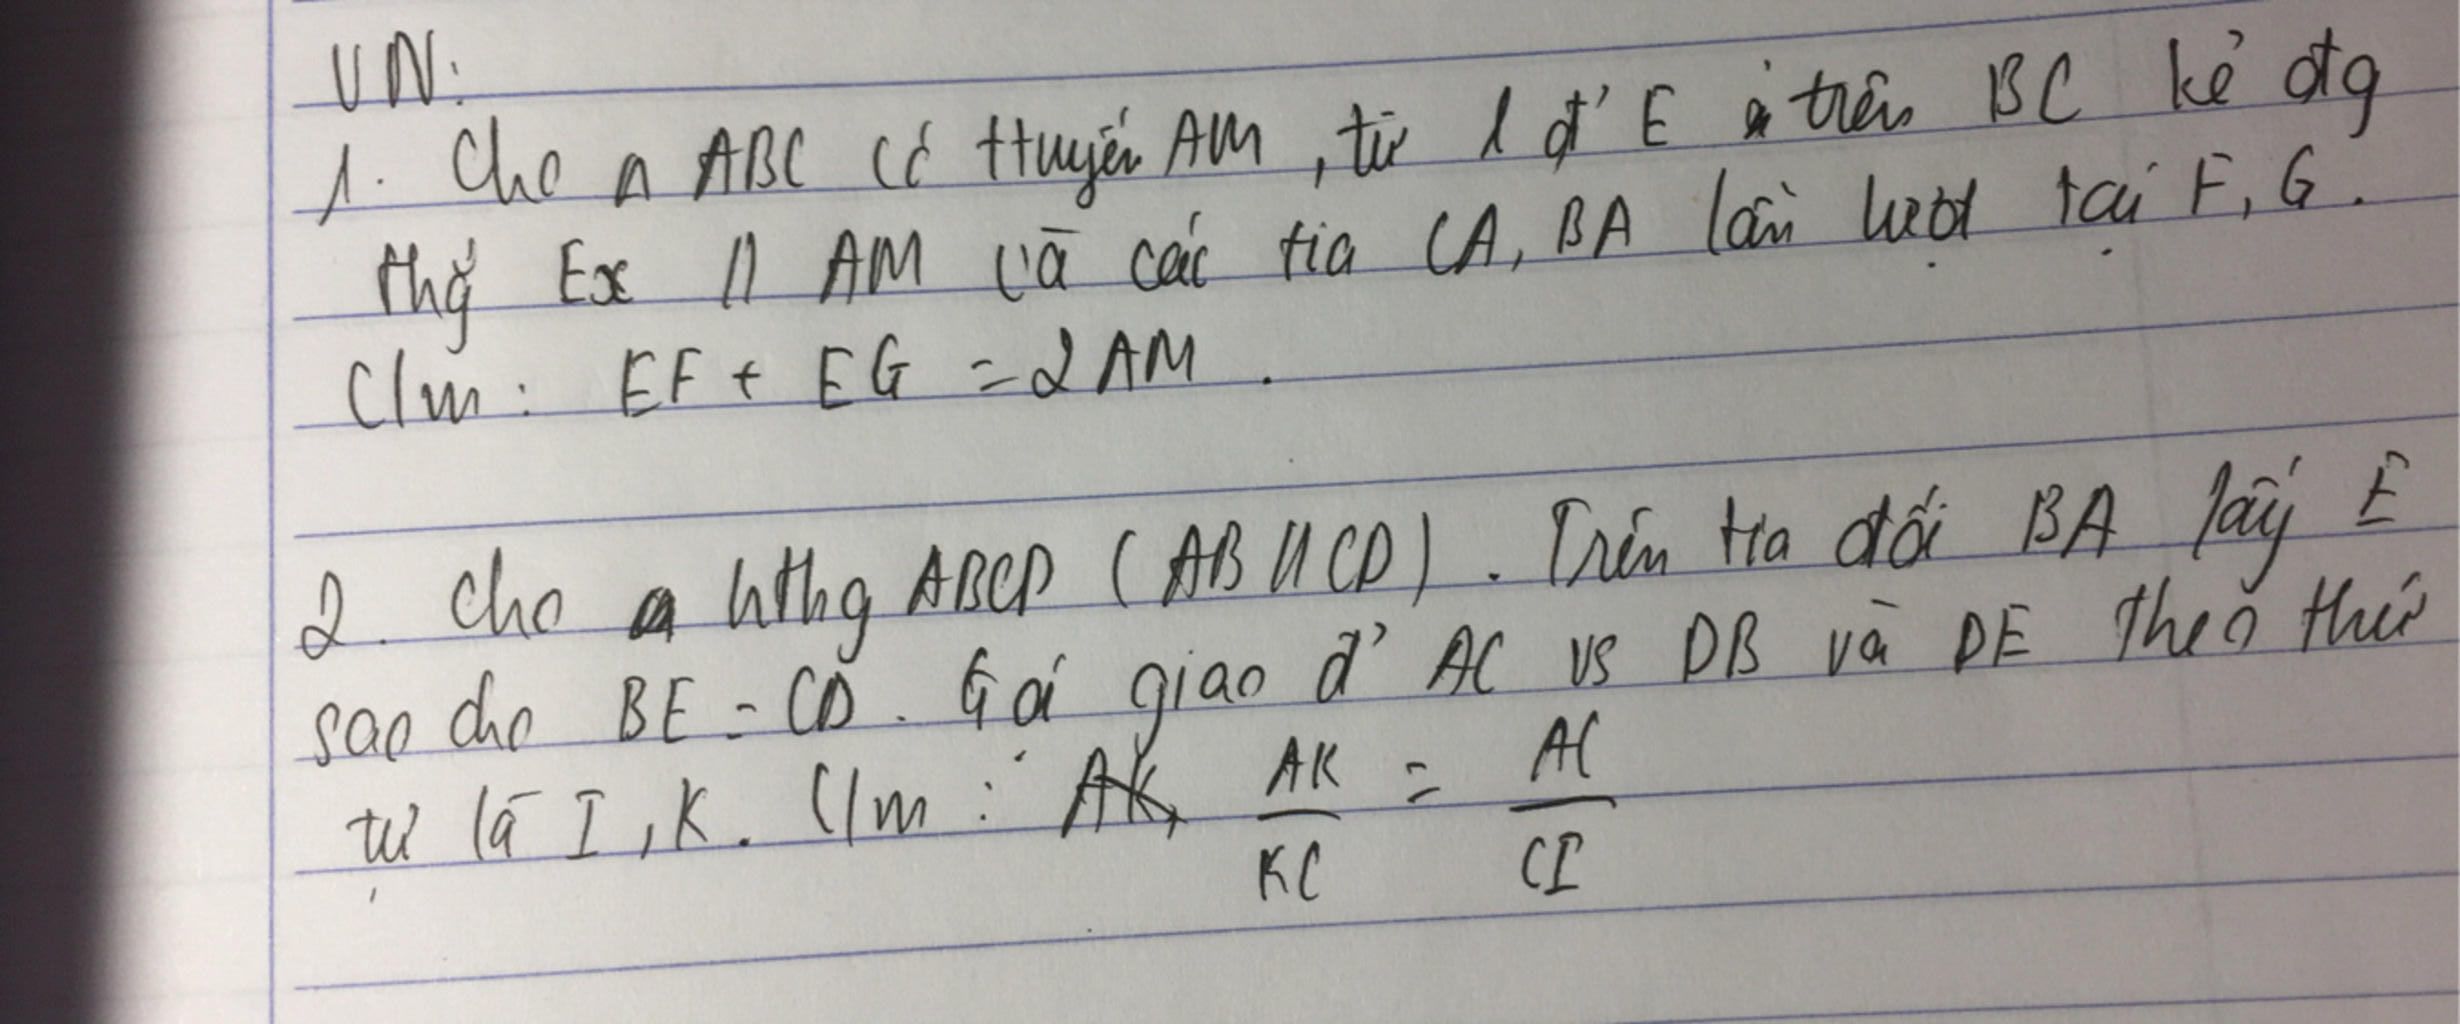 VN:
1. Cho △ ABC có ttuyến AM, từ 1 đ' E trên BC kẻ đtg
thg̉ Ex // AM và các tia CA, BA lần lượt tại F, G.
C/m: EF + EG = 2AM.
2. Cho hthg ABCD (AB // CD). Trên tia đối BA lấy E
sao cho BE = CD. Gọi giao đ' AC vs DB và DE theo thứ
tự là I, K. C/m: AK/KC = AC/CI